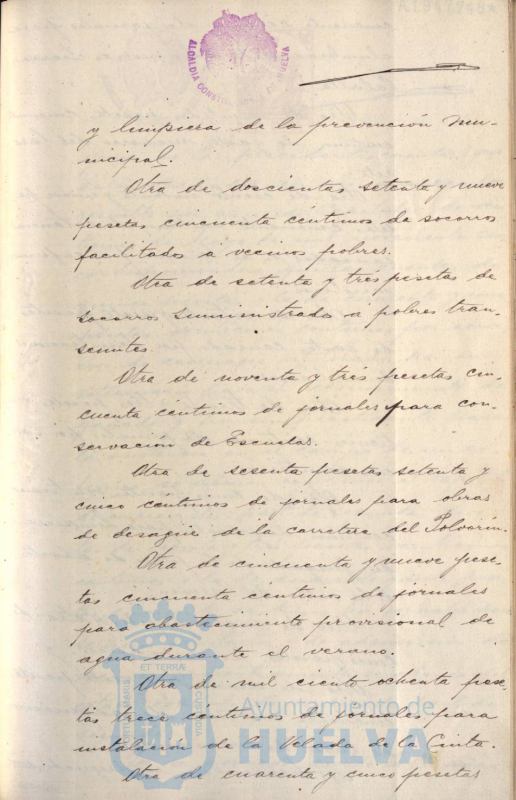 A1947748*
ALCALDIA CONSTI HUELVA
y limpiera de la prevención mu-
nicipal.
Otra de doscientas setenta y nueve
pesetas cincuenta céntimos de socorros
facilitados a vecinos pobres.
Otra de setenta y tres pesetas de
socorros suministrados a pobres tran-
seuntes.
Otra de noventa y tres pesetas cin-
cuenta céntimos de jornales para con-
servación de Escuelas.
Otra de sesenta pesetas setenta y
cinco céntimos de jornales para obras
de desagüe de la carretera del Polvorín.
Otra de cincuenta y nueve pese-
tas cincuenta céntimos de jornales
para abastecimiento provisional de
agua durante el verano.
Otra de mil ciento ochenta pese-
tas trece céntimos de jornales para
instalación de la Velada de la Cinta.
Otra de cuarenta y cinco pesetas
ET TERRÆ
Ayuntamiento de
HUELVA